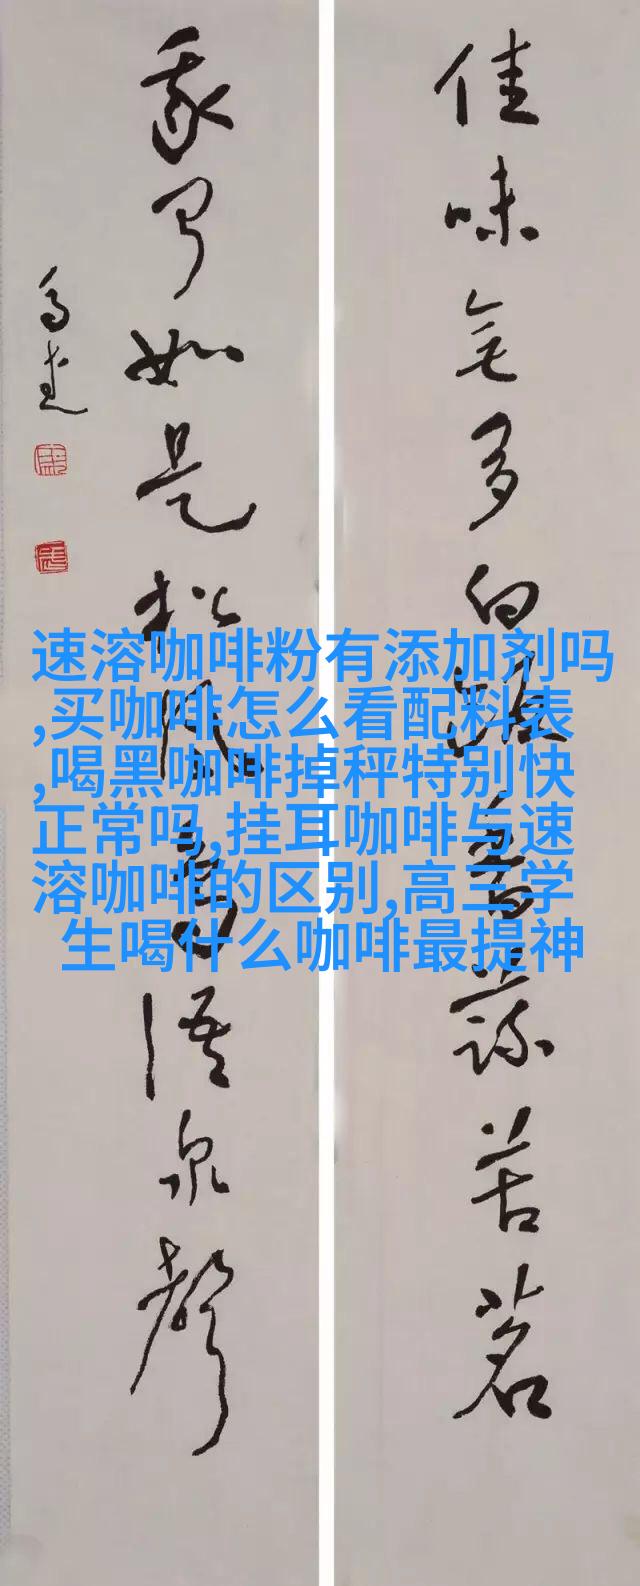 佳味無多白飯香蔬苦茗
我聞如是松風鳥語泉聲
速溶咖啡粉有添加剂吗
,买咖啡怎么看配料表
,喝黑咖啡掉秤特别快
正常吗,挂耳咖啡与速
溶咖啡的区别,高三学
生喝什么咖啡最提神